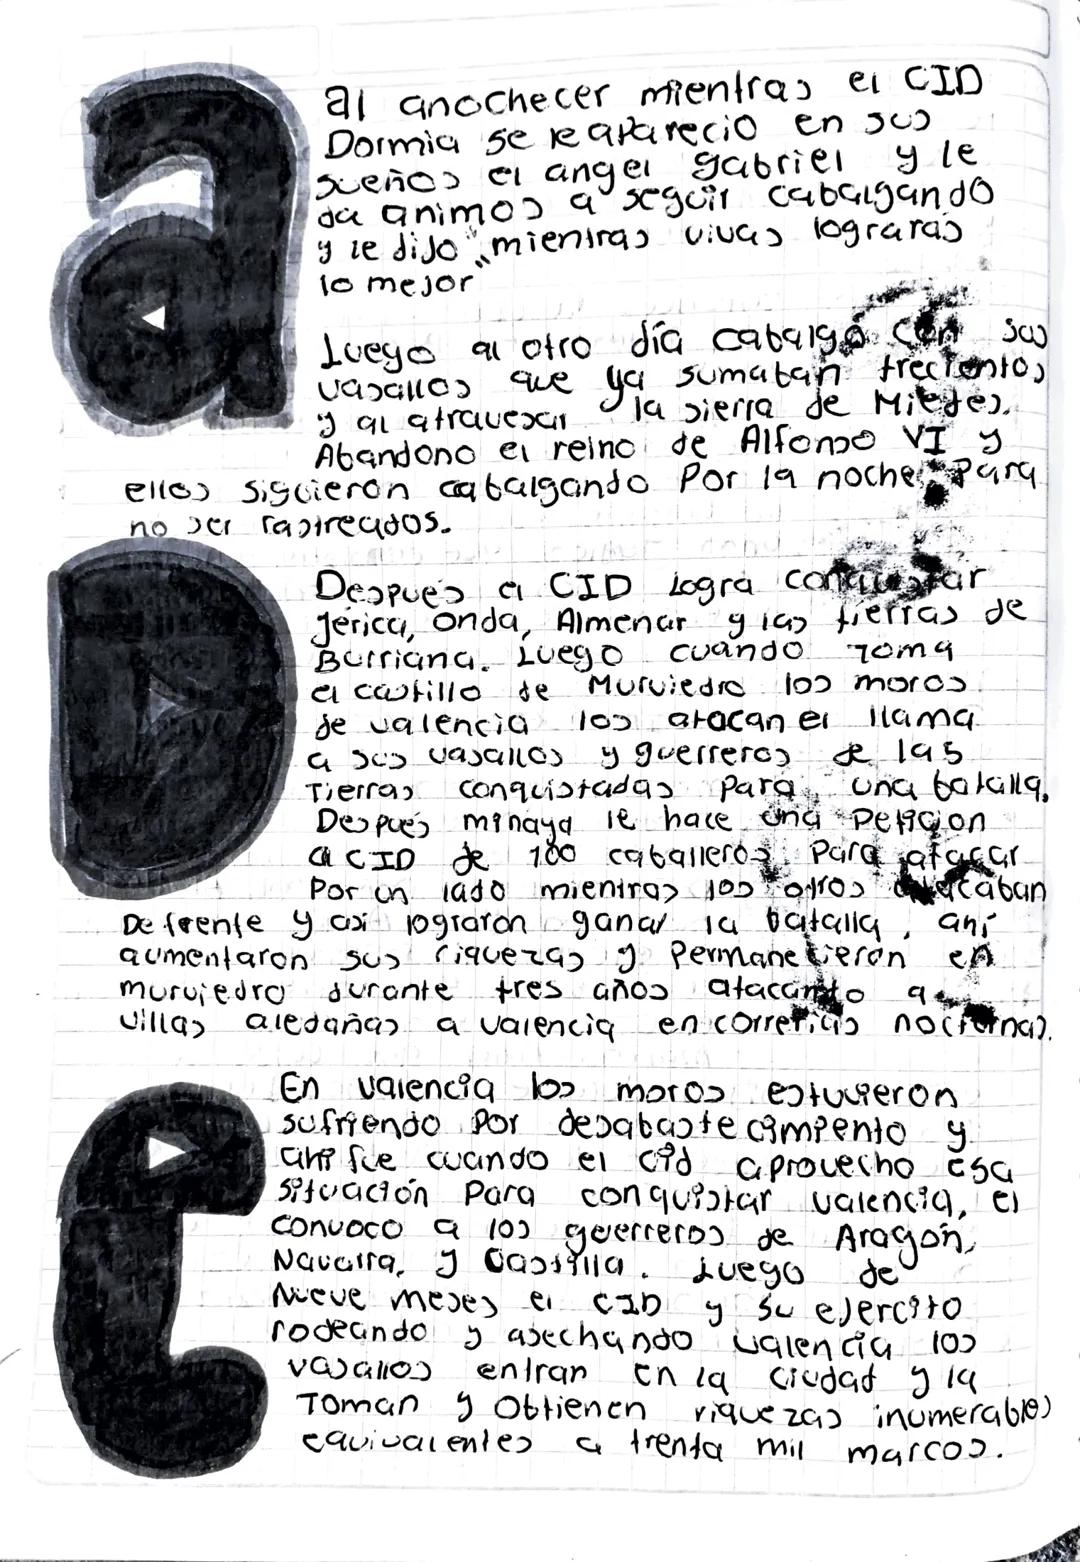 a
al anochecer mientras el CID
Dormia se le aparecio en sus
sueños el angel gabriel y le
da animos a seguir cabalgando
y le dijo "mientras vivas lograrás
lo mejor"
Luego al otro día cabalgó con sus
vasallos que ya sumaban trecientos
y al atravesar la sierra de Miedes.
Abandono el reino de Alfonso VI y
ellos siguieron cabalgando Por la noche Para
no ser rastreados.
D
Después el CID Logra conquistar
Jerica, Onda, Almenar y las tierras de
Burriana. Luego cuando Toma
el castillo de Murviedro los moros
de valencia los atacan el llama
a sus vasallos y guerreros de las
Tierras conquistadas Para una batalla.
Después minaya le hace una Petición
al CID de 100 caballeros Para atacar
Por un lado mientras los otros atacaban
De frente y así lograron ganar la batalla, ahí
aumentaron sus riquezas y Permanecieron en
murviedro durante tres años atacando a
villas aledañas a valencia en correrias nocturnas.
E
En valencia los moros estuvieron
sufriendo Por desabastecimiento y
ahi fue cuando el cid aprovecho esa
situación Para conquistar valencia, el
convoco a los guerreros de Aragón,
Navarra, y Castilla. Luego de
Nueve meses el CID y su ejercito
rodeando y asechando valencia los
vasallos entran en la ciudad y la
Toman y Obtienen riquezas inumerables
equivalentes a trenta mil marcos.